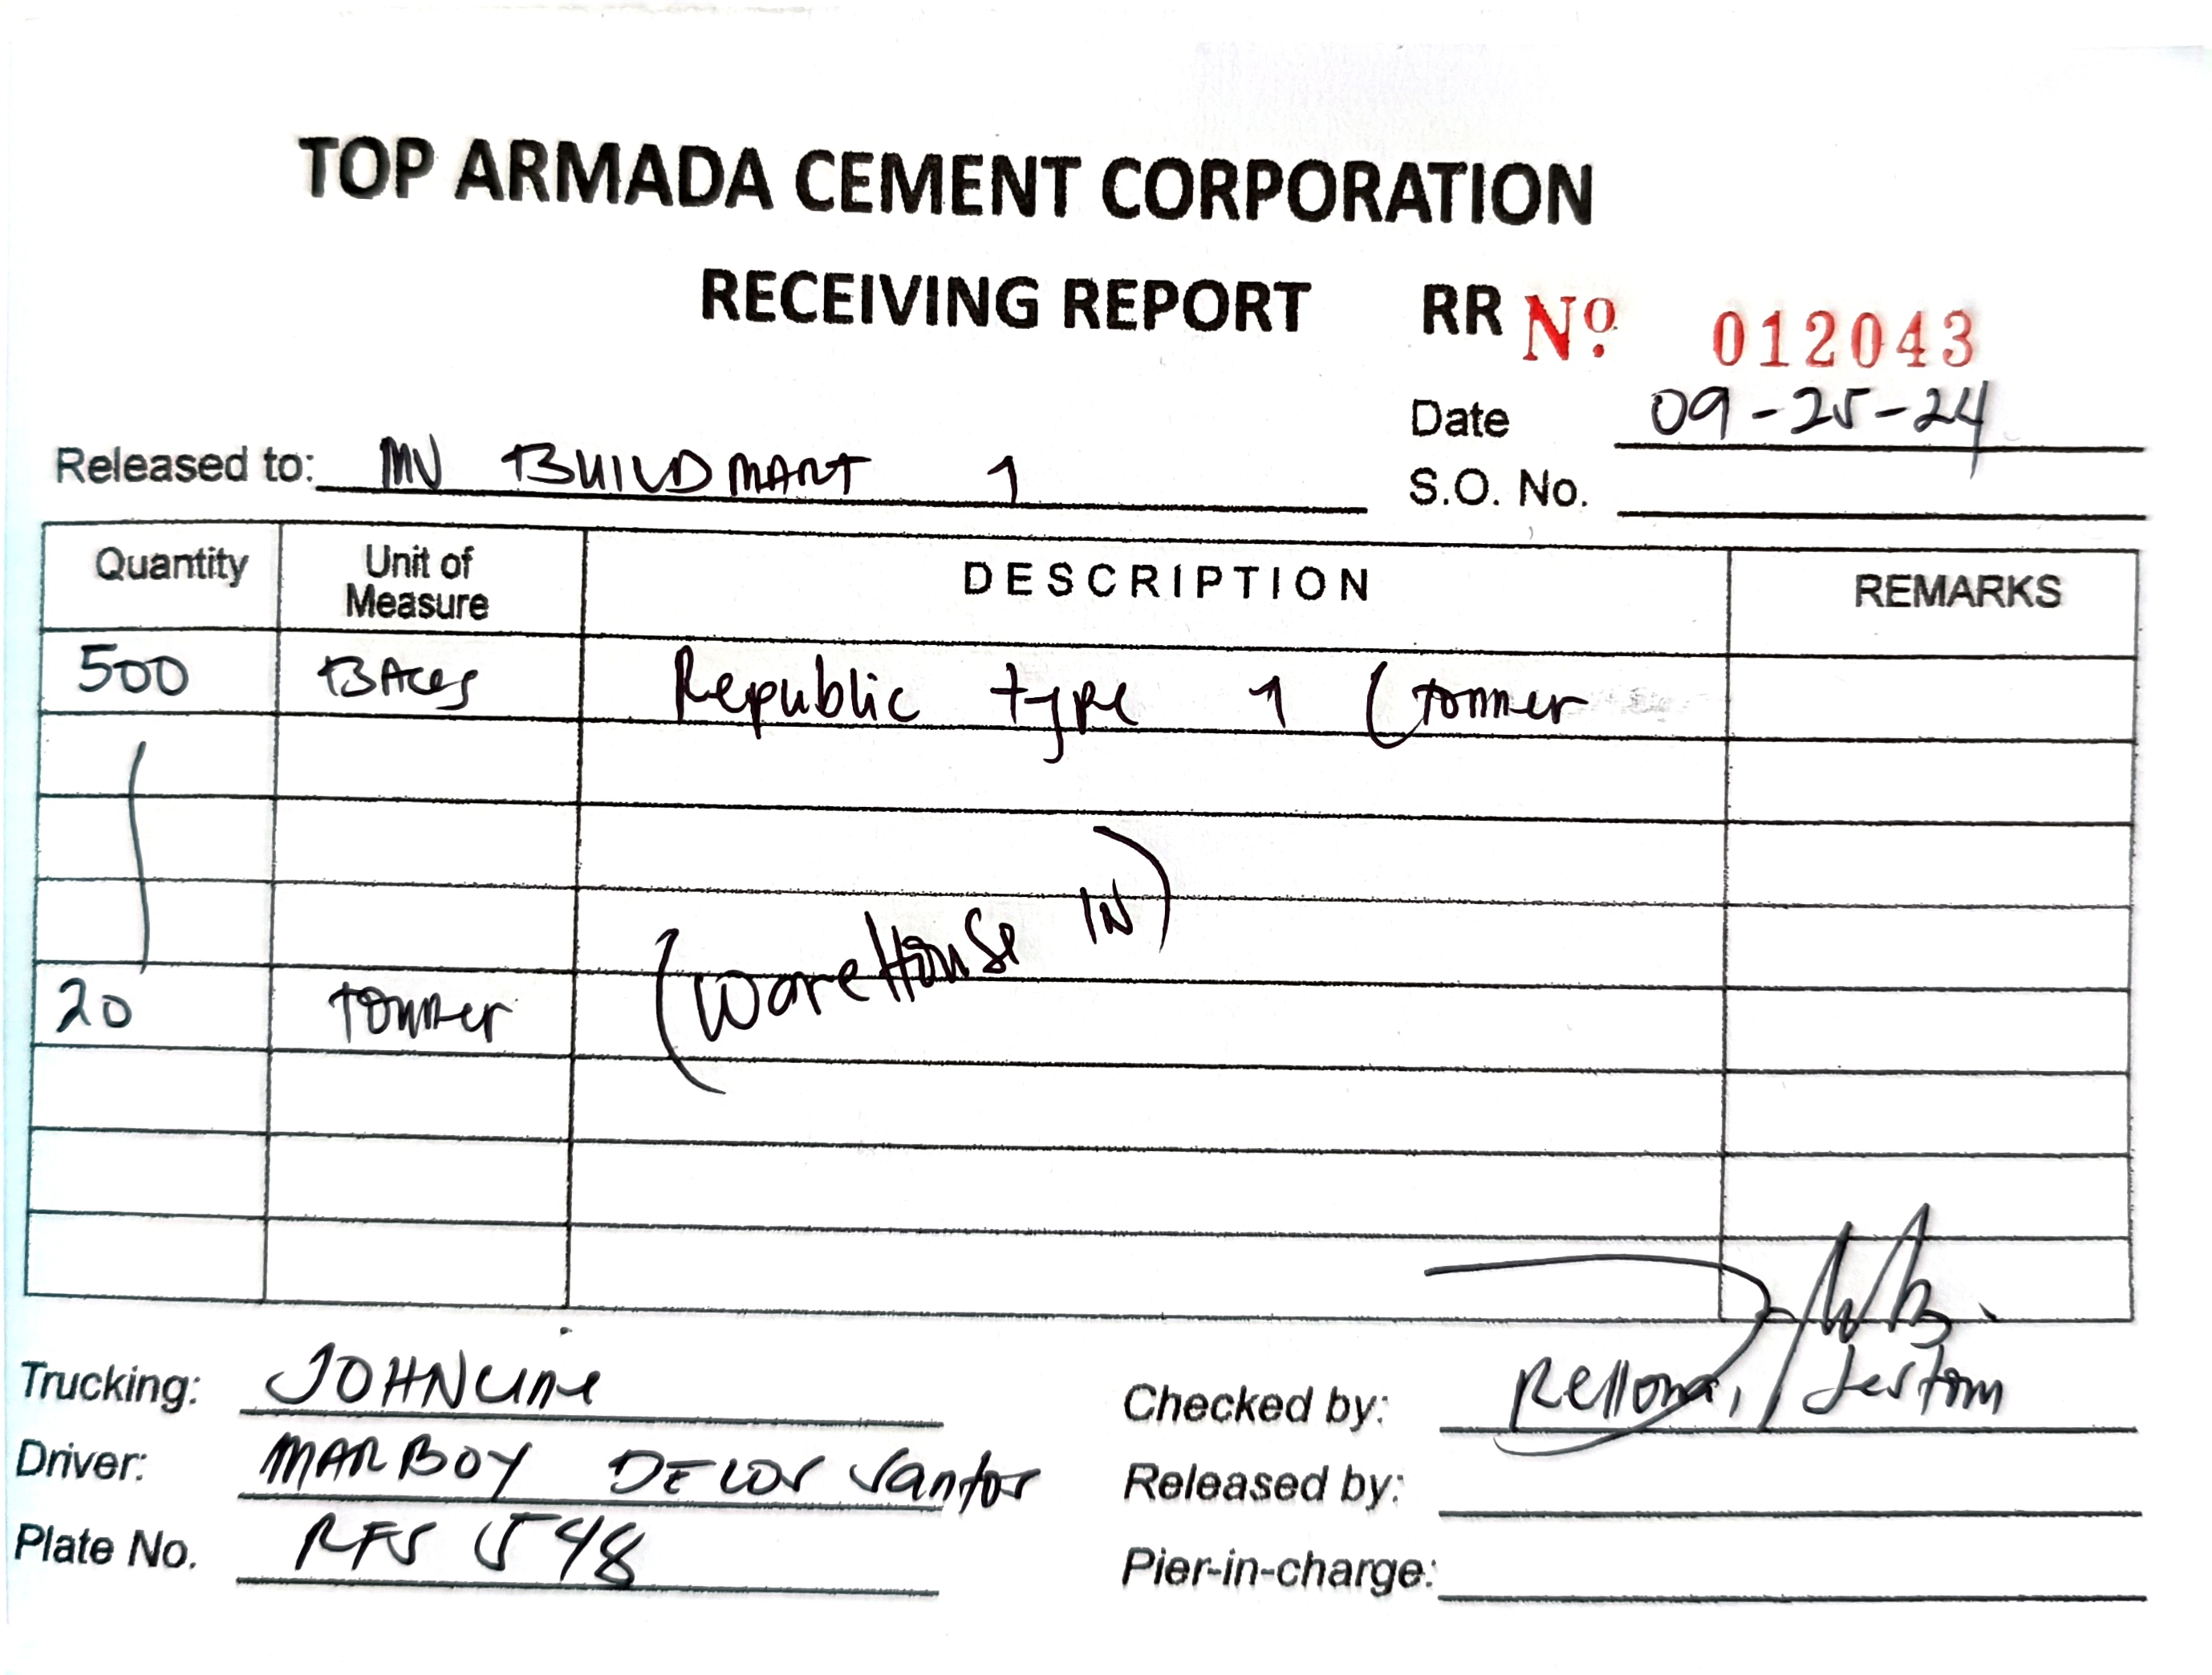 TOP ARMADA CEMENT CORPORATION
RECEIVING REPORT RR Nº 012043
Date 09-25-24
Released to: MV BUILDMART 1
S.O. No.
Quantity Unit of Measure DESCRIPTION REMARKS
500 BAGS Republic type 1 (tonner
(WareHouse IN)
20 tonner
Trucking: JOHNLINE
Checked by: Rellona, / Jestom
Driver: MARBOY DELOS Santos
Released by:
Plate No. RFS 548
Pier-in-charge: